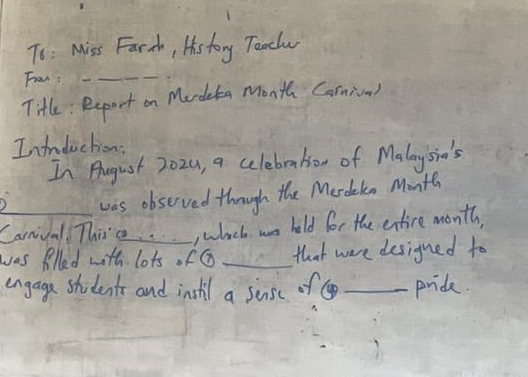 To: Miss Farah, History Teacher
From: - - - - -
Title: Report on Merdeka Month Carnival
Introduction:
In August 2024, a celebration of Malaysia's
① ______ was observed through the Merdeka Month
Carnival. This ② . . . . , which was held for the entire month,
was filled with lots of ③ ______ that were designed to
engage students and instil a sense of ④ ______ pride.